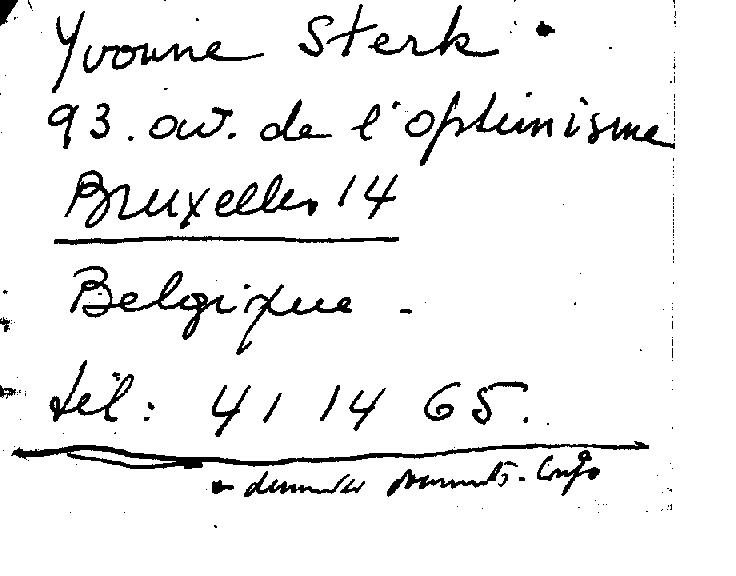 Yvonne Sterk
93. av. de l'optimisme
Bruxelles 14
Belgique -
tél: 41 14 65.